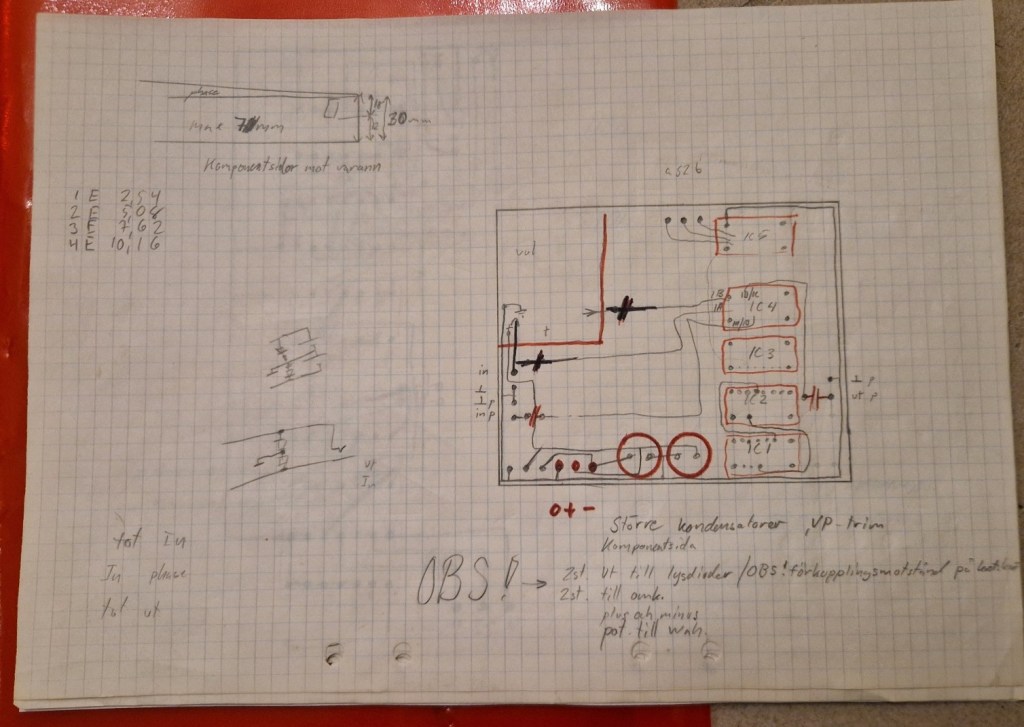 phase
max 7 mm
30 mm
Komponentsidor mot varann
1 E 2,54
2 E 5,08
3 E 7,62
4 E 10,16
IC5
vol
1B
1A
IC4
t
IC3
in
in P
IC2
P
ut P
IC1
ut
In
0 + -
Större kondensatorer, VP-trim
Komponentsida
tot In
In phase
tot ut
OBS! → 2st. ut till lysdioder /OBS! förkopplingsmotstånd på
2st. till omk.
plus och minus
pot. till wah.